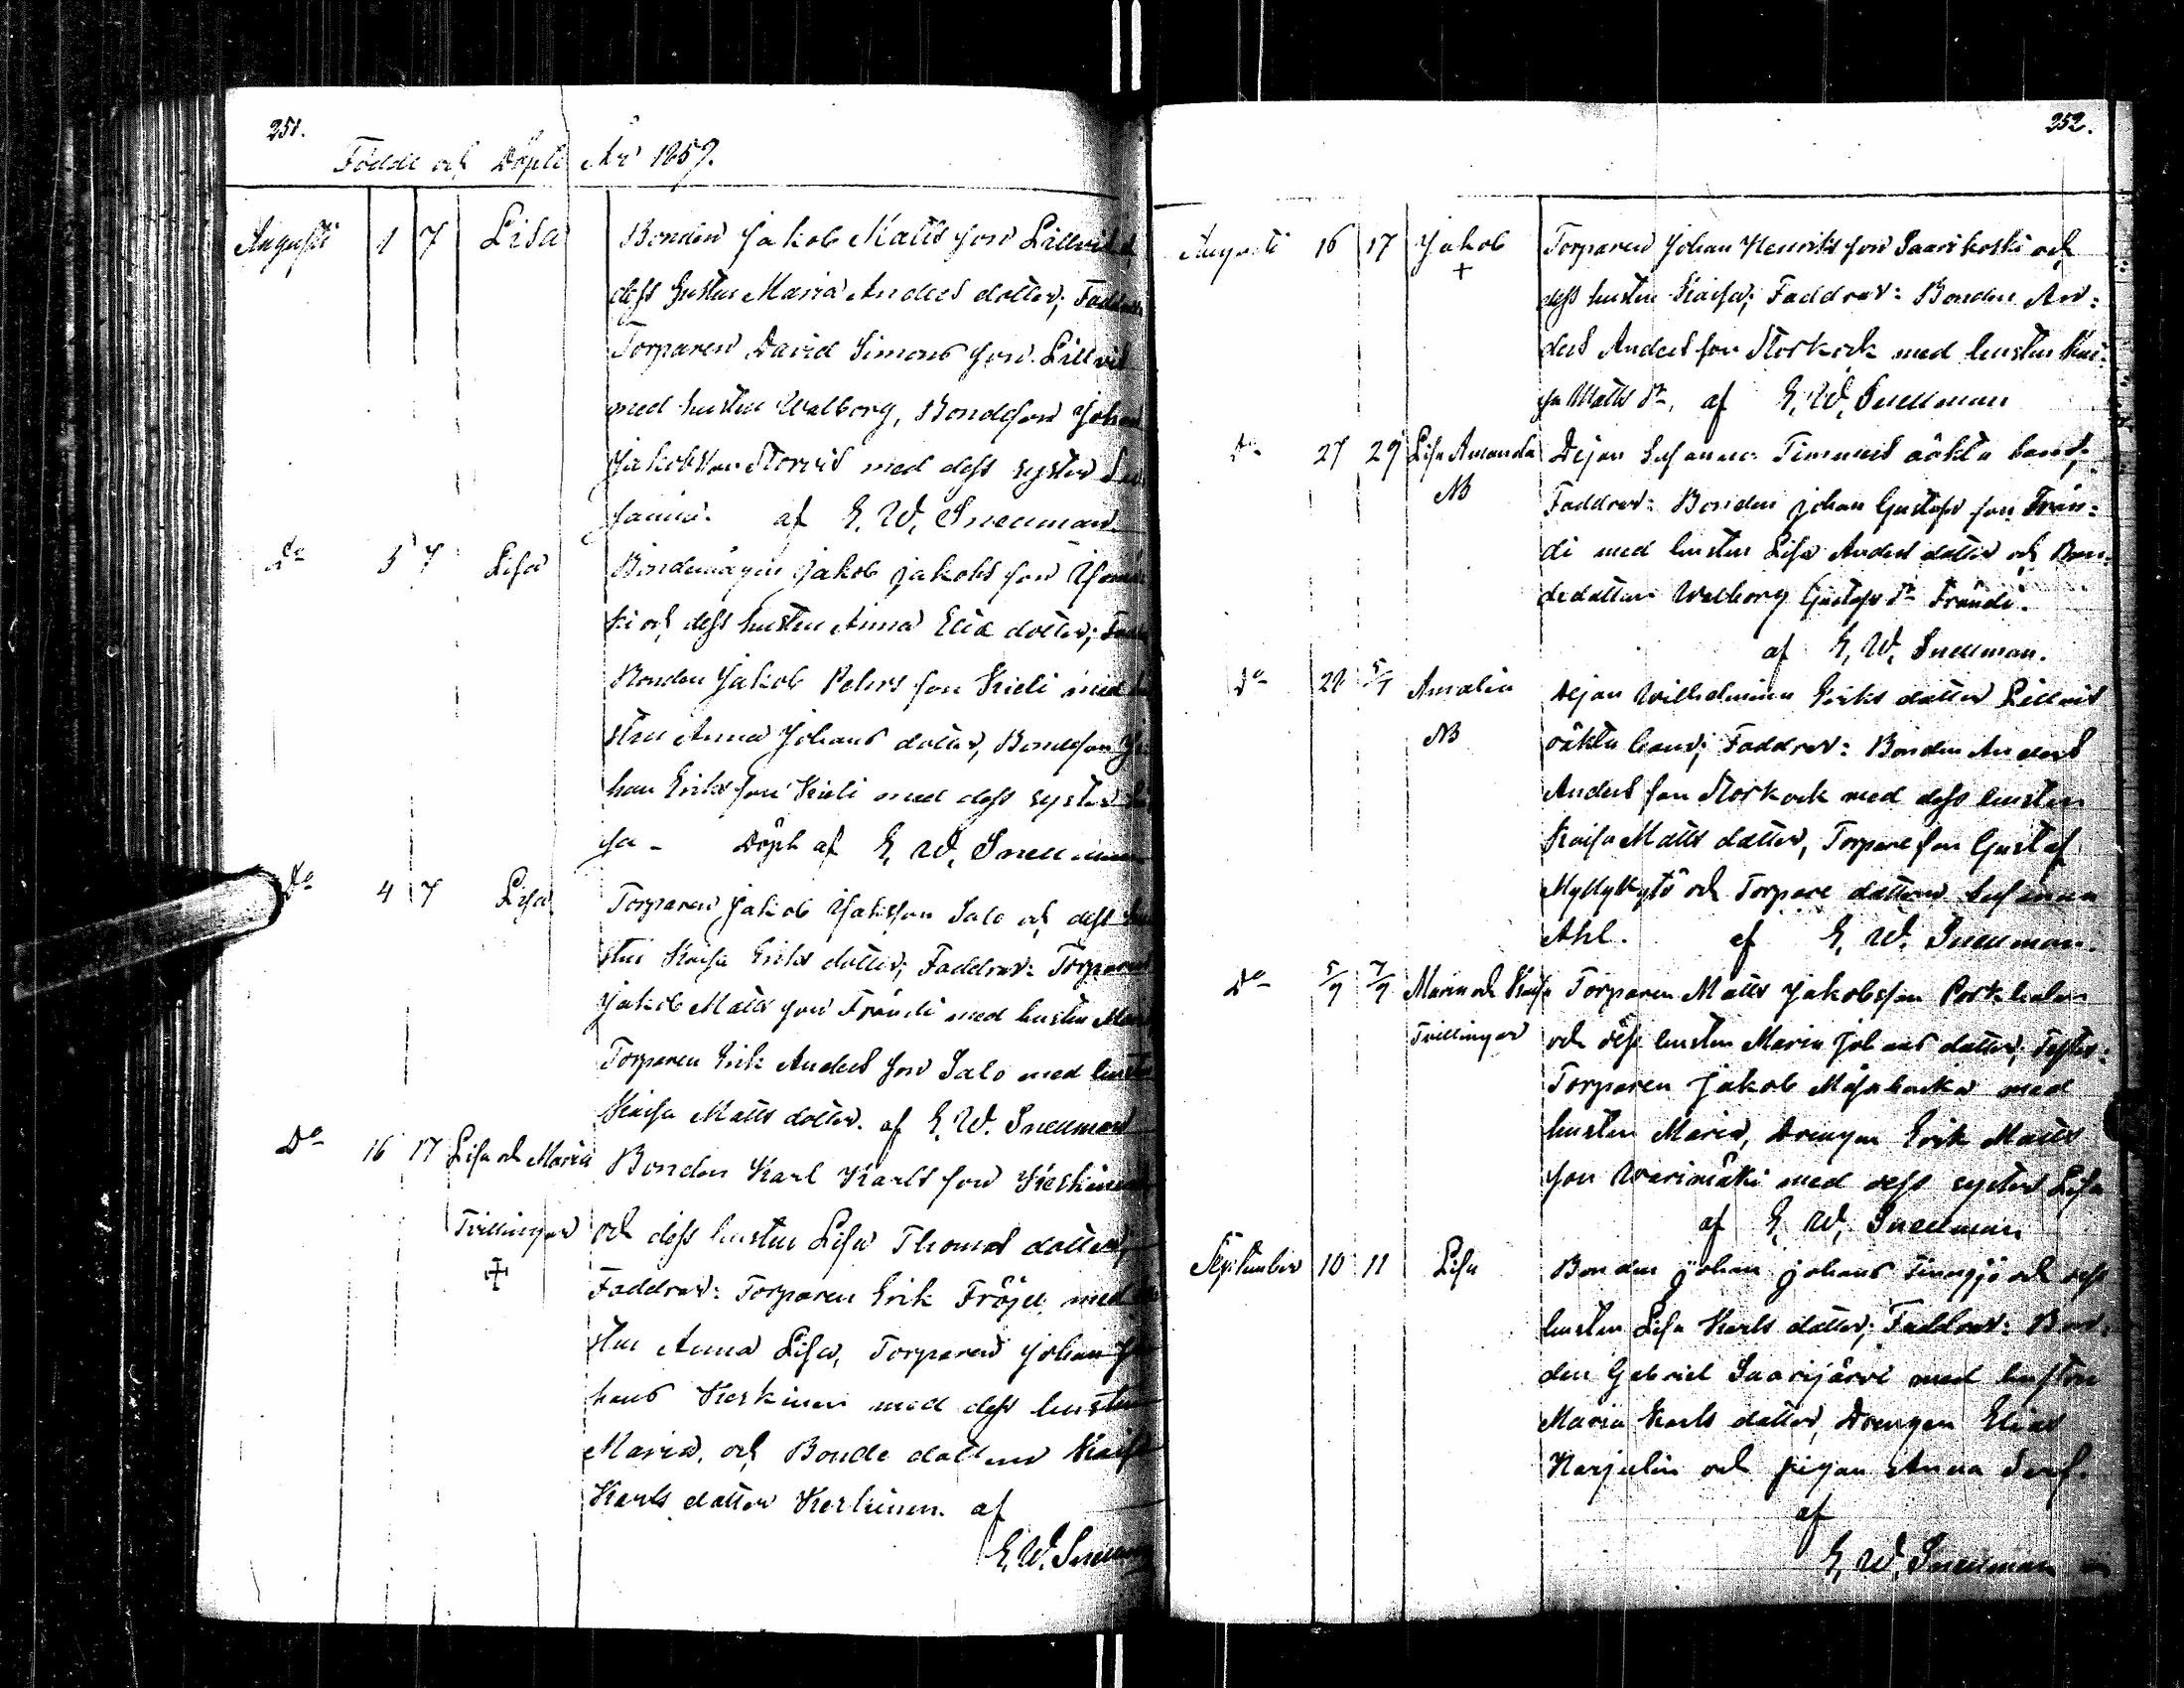 251.
Födde och Döpte År 1859.
Augusti 1 7 Lisa Bonden Jakob Matts son Lillvis
dess hustru Maria Anders dotter; Faddr
Torparen David Simons son Lillvis
med hustru Walborg, Bondeson Johan
Jakobsson Storvis med dess syster Su
sanna. af E. W. Snellman
Do 3 7 Lisa Bondemågen Jakob Jakobs son
ki och dess hustru Anna Elia dotter;
Bonden Jakob Pehrs son Kieli med hu
stru Anna Johans dotter, Bondeson Jo
han Eriks son Kieli med dess syster
sa - Döpt af E. W. Snellman
Do 4 7 Lisa Torparen Jakob Jakobsson Salo och dess hu
stru Kaisa Eriks dotter; Faddrar: Torparen
Jakob Matts son Frändi med hustru
Torparen Erik Anders son Salo med hustru
Kaisa Matts dotter. af E. W. Snellman
Do 16 17 Lisa och Maria Bonden Karl Karls son Keskinen
Tvillingar och dess hustru Lisa Thomas dotter;
Faddrar: Torparen Erik Fröjd med hu
stru Anna Lisa, Torparen Johan Jo
hans Keskinen med dess hustru
Maria, och Bonde dottern Kaisa
Karls dotter Keskinen. af
E. W. Snellman
252.
Augusti 16 17 Jakob Torparen Johan Henriks son Saarikoski och
dess hustru Kaisa; Faddrar: Bonden An:
ders Anders son Storkock med hustru Kai:
sa Matts dr, af E. W. Snellman
Do 27 29 Lisa Amanda Pigan Susanna Timmes oäkta barn;
NB Faddrar: Bonden Johan Gustafs son Frän:
di med hustru Lisa Anders dotter och Bon:
dedottern Walborg Gustafs dr Frändi.
af E. W. Snellman.
Do 28 5/9 Amalia Pigan Wilhelmina Eriks dotter Lillvis
NB oäkta barn; Faddrar: Bonden Anders
Anders son Storkock med dess hustru
Kaisa Matts dotter, Torpare son Gustaf
Myllykytö och Torpare dottern Susanna
Ahl. af E. W. Snellman.
Do 5/9 7/9 Maria och Kaisa Torparen Matts Jakobsson Porkhalm
Tvillingar och dess hustru Maria Johans dotter;
Torparen Jakob med
hustru Maria, Drengen Erik Matts
son Warimäki med dess syster Lisa
af E. W. Snellman
September 10 11 Lisa Bonden Johan Johans och dess
hustru Lisa Karls dotter; Faddrar: Bon:
den Gabriel Saarijärvi med hustru
Maria Karls dotter, Drengen Elias
Harjulin och pigan Anna
af
E. W. Snellman